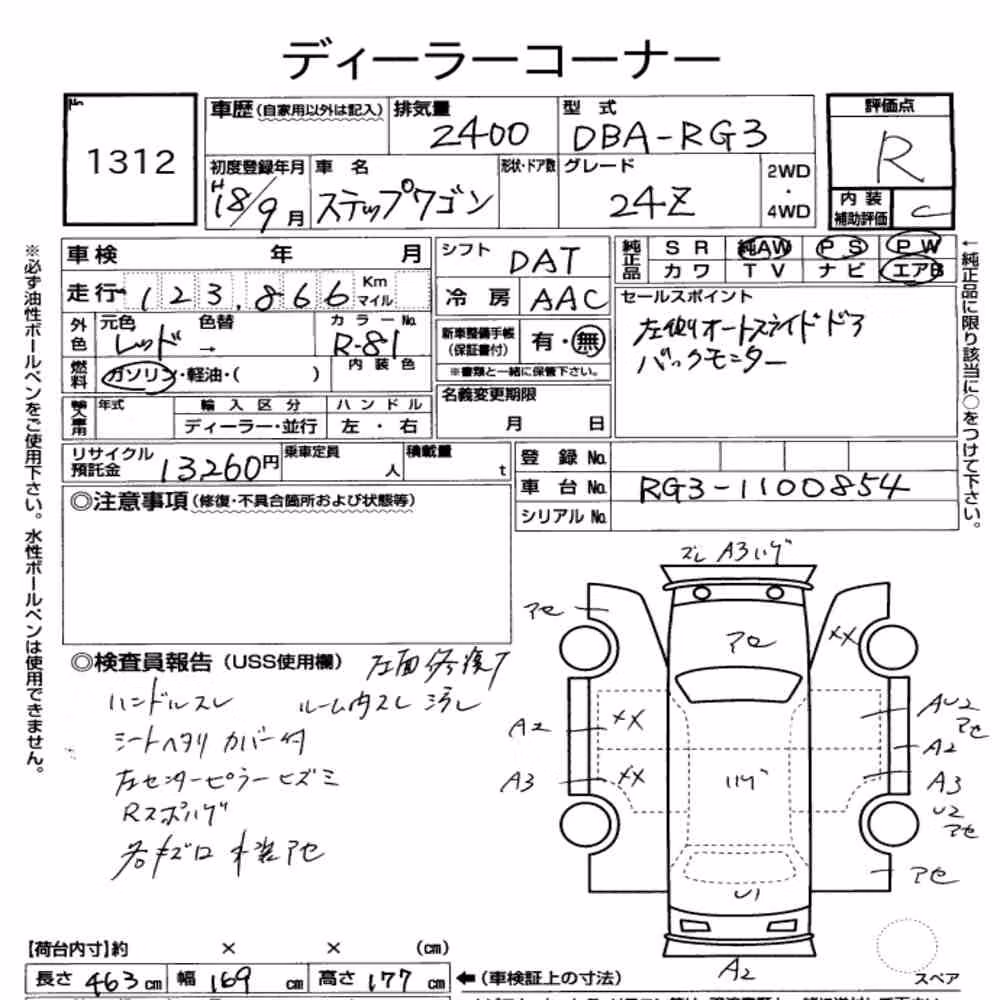 ディーラーコーナー
No.
1312
車歴(自家用以外は記入)
排気量
2400
型 式
DBA-RG3
評価点
R
初度登録年月
H18/9月
車 名
ステップワゴン
形状・ドア数
グレード
24Z
2WD
・
4WD
内 装
補助評価
C
車 検 年 月
シフト
DAT
純正品
SR 純AW PS PW
カワ TV ナビ エアB
走行 123,866 Km
マイル
冷 房
AAC
セールスポイント
左側オートスライドドア
バックモニター
外色
元色 色替
レッド →
カラーNo.
R-81
新車整備手帳
(保証書付)
有・無
※書類と一緒に保管下さい。
燃料
ガソリン・軽油・( )
内 装 色
名義変更期限
月 日
輸入車用
年式
輸 入 区 分
ディーラー・並行
ハ ン ド ル
左 ・ 右
リサイクル
預託金
13260円
乗車定員
人
積載量
t
登 録 No.
車 台 No.
RG3-1100854
シリアル No.
◎注意事項(修復・不具合箇所および状態等)
※必ず油性ボールペンをご使用下さい。水性ボールペンは使用できません。
←純正品に限り該当に○をつけて下さい。
◎検査員報告(USS使用欄)
左面修復了
ハンドルスレ ルーム内スレ汚レ
シートヘタリ カバー付
左センターピラーヒズミ
Rスポハゲ
各キズロ 木装アセ
ズレ A3 ハゲ
アセ
アセ
XX
XX
XX
A2
A3
ハゲ
AU2
アセ
A2
A3
U2
アセ
アセ
U1
A2
スペア
【荷台内寸】約 × × (cm)
長さ 463 cm 幅 169 cm 高さ 177 cm
←(車検証上の寸法)